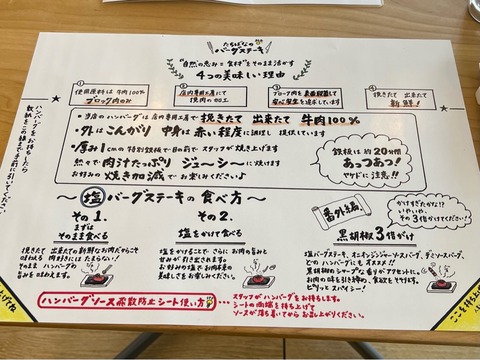 たちばなの
バーグステーキ
"自然の恵み＝食材"をそのまま活かす
4つの美味しい理由
①
使用原料は牛肉100%
ブロック肉のみ
②
店内専用工房にて
挽肉の加工
③
ブロック肉を表面殺菌して
安心安全を追求しています
④
挽きたて 出来たて
新鮮!
・当店のハンバーグは店内専用工房で挽きたて 出来たて 牛肉100%
・外はこんがり 中身は赤い程度に調理し 提供しています
・厚み1cmの特別鉄板で目の前で スタッフが焼き上げます
熱々で肉汁たっぷり ジュ〜シ〜に焼けます
お好みの焼き加減でお楽しみ下さい♪
鉄板は約20分間
あっつあつ!
ヤケドに注意!!
〜塩バーグステーキの食べ方〜
その1.
まずは
そのまま食べる
挽きたて 出来たての新鮮なお肉だからこそ
味わえる 肉好きにはたまらない!
そのまま ハンバーグの
お肉の旨みを味わえます。
その2.
塩をかけて食べる
塩をかけることで、さらにお肉の旨みと
甘みが引き出されます。
お好みの塩でお肉本来の
美味しさをお楽しみください。
番外編。
かけすぎたかな!?
いやいや、
その3倍かけてください!
黒胡椒3倍がけ
塩バーグステーキ、オニオンジンジャーソースバーグ、デミソースバーグ、
どのハンバーグにもオススメ!!
黒胡椒のシャープな香りがアクセントに。
お肉の味を引き締め、食欲をそそります。
ピリッとスパイシー!
ハンバーグソース飛散防止シート使い方
・・・スタッフがハンバーグをお持ちします。
シートの両端を持ち上げて
ソースが落ち着いてからお召し上がりください。
ハンバーグをお持ちしたら
敷紙をこの線まで手前に引いてください
ここを持ち上